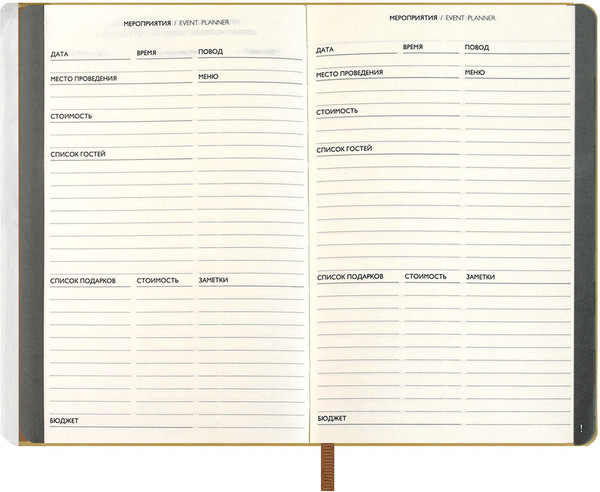 МЕРОПРИЯТИЯ / EVENT PLANNER
ДАТА ВРЕМЯ ПОВОД
МЕСТО ПРОВЕДЕНИЯ МЕНЮ
СТОИМОСТЬ
СПИСОК ГОСТЕЙ
СПИСОК ПОДАРКОВ СТОИМОСТЬ ЗАМЕТКИ
БЮДЖЕТ
МЕРОПРИЯТИЯ / EVENT PLANNER
ДАТА ВРЕМЯ ПОВОД
МЕСТО ПРОВЕДЕНИЯ МЕНЮ
СТОИМОСТЬ
СПИСОК ГОСТЕЙ
СПИСОК ПОДАРКОВ СТОИМОСТЬ ЗАМЕТКИ
БЮДЖЕТ
!